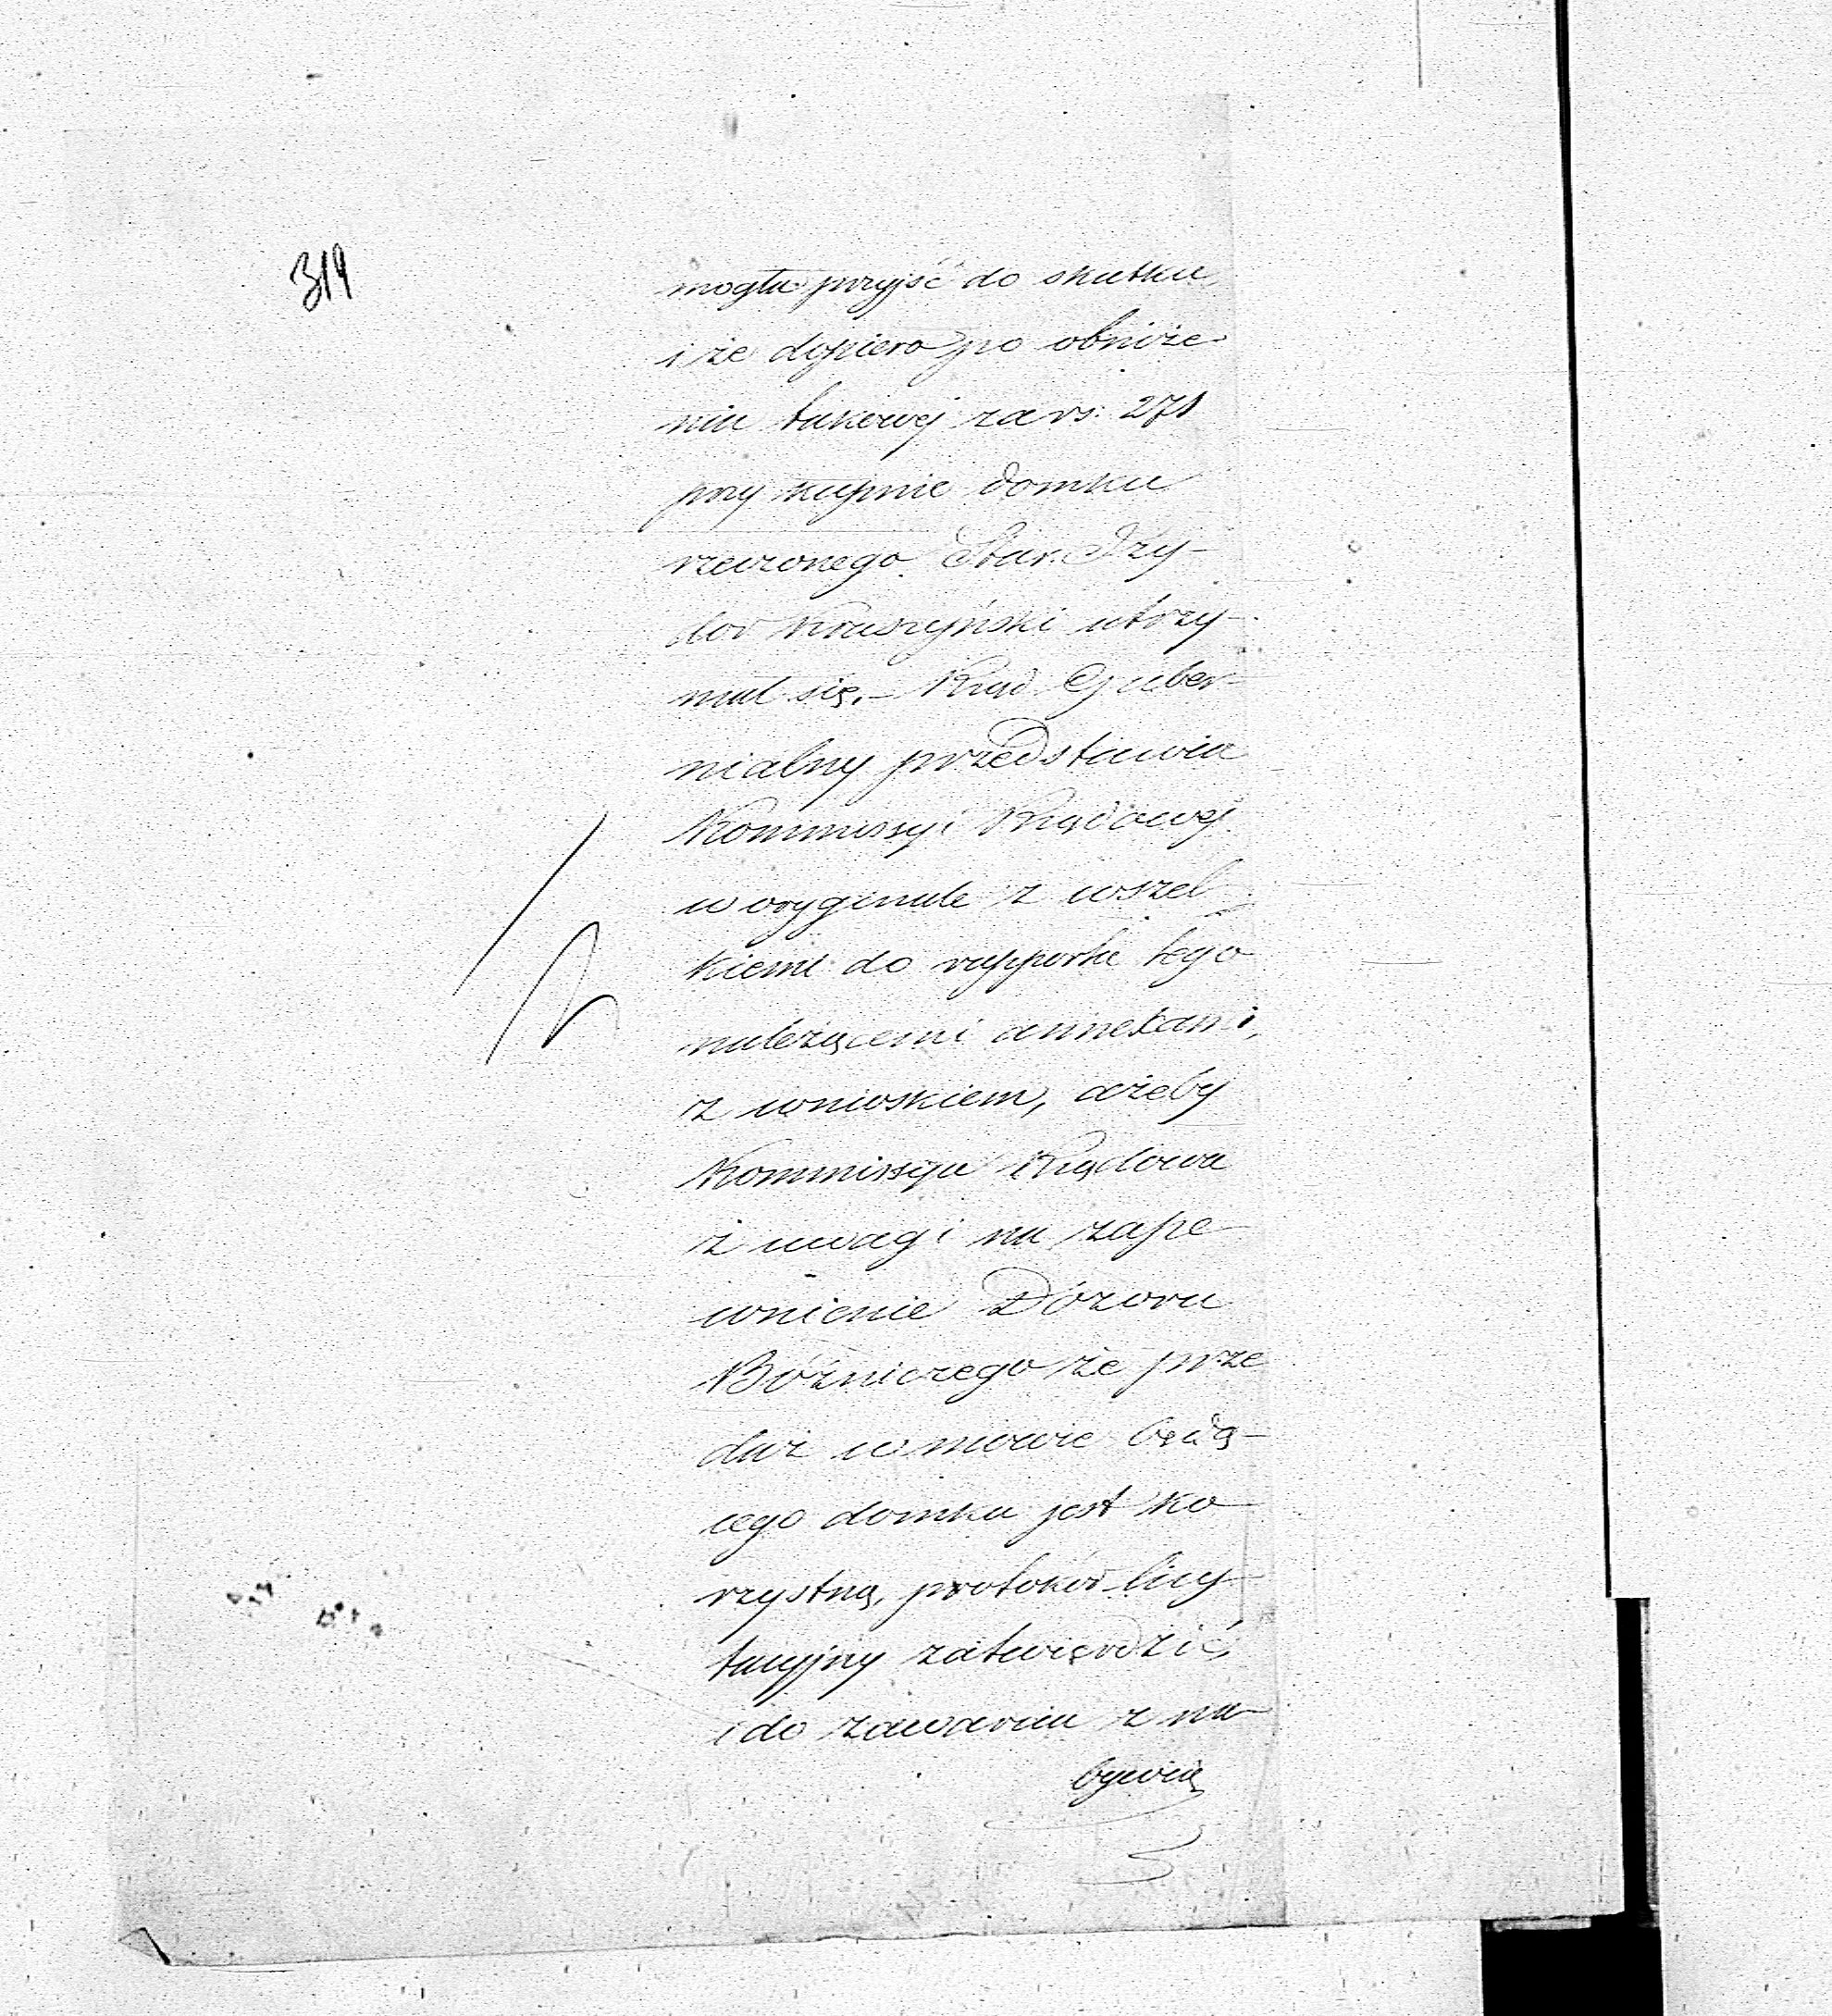 319
mogła przyjść do skutku
i że dopiero po obniże
niu takowej za rs: 271
przy kupnie domku
rzeczonego Star. Izy-
dor Kruszyński utrzy-
mał się. – Rząd Guber-
nialny przedstawia
Kommissyi Rządowej
w oryginale z wszel
kiemi do rapportu tego
należącemi annexami,
z wnioskiem, ażeby
Kommissya Rządowa
z uwagi na zape-
wnienie Dozoru
Bóżniczego że prze
daż w mowie będą-
cego domku jest ko-
rzystną, protokół licy-
tacyjny zatwierdzić,
i do zawarcia z na-
bywcą